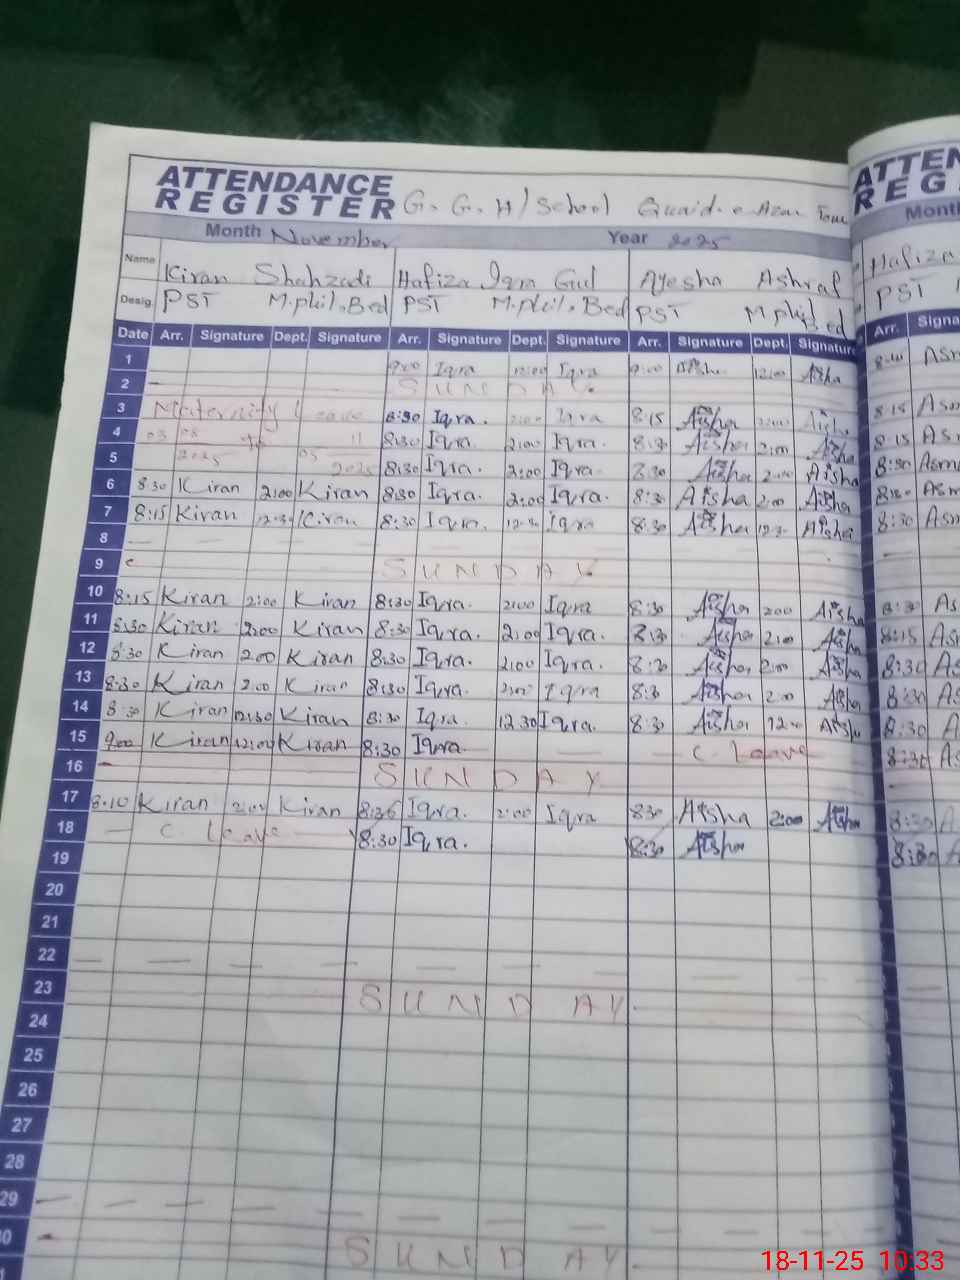 ATTENDANCE
REGISTER G. G. H/School Quaid-e-Azam Town
Month November Year 2025
Name Kiran Shahzadi Hafiza Iqra Gul Ayesha Ashraf
Desig. PST M.phil.Bed PST M.phil.Bed PST M.phil Bed
Date Arr. Signature Dept. Signature Arr. Signature Dept. Signature Arr. Signature Dept. Signature
1 9:00 Iqra 12:00 Iqra 9:00 Aisha 12:00 Aisha
2 SUNDAY
3 Maternity Leave 8:30 Iqra 2:00 Iqra 8:15 Aisha 2:00 Aisha
4 8:30 Iqra 2:00 Iqra 8:30 Aisha 2:00 Aisha
5 2025 05 2025 8:30 Iqra 2:00 Iqra 8:30 Aisha 2:00 Aisha
6 8:30 Kiran 2:00 Kiran 8:30 Iqra. 2:00 Iqra. 8:30 Aisha 2:00 Aisha
7 8:15 Kiran 12:30 Kiran 8:30 Iqra. 12:30 Iqra 8:30 Aisha 12:30 Aisha
8
9 SUNDAY
10 8:15 Kiran 2:00 Kiran 8:30 Iqra. 2:00 Iqra 8:30 Aisha 2:00 Aisha
11 8:30 Kiran 2:00 Kiran 8:30 Iqra. 2:00 Iqra. 8:30 Aisha 2:00 Aisha
12 8:30 Kiran 2.00 Kiran 8:30 Iqra. 2:00 Iqra 8:30 Aisha 2:00 Aisha
13 8:30 Kiran 2.00 Kiran 8:30 Iqra. 2:00 Iqra 8:30 Aisha 2:00 Aisha
14 8:30 Kiran 12:30 Kiran 8:30 Iqra. 12.30 Iqra. 8:30 Aisha Aisha
15 9:00 Kiran 12:00 Kiran 8:30 Iqra. C. Leave
16 SUNDAY
17 8:10 Kiran 2:00 Kiran 8:36 Iqra. 2:00 Iqra 830 Aisha 2:00 Aisha
18 C. Leave 8:30 Iqra. 8:30 Aisha
19
20
21
22
23 SUNDAY
24
25
26
27
28
29
30 SUNDAY
ATTEN
REG
Month
Hafiza
PST
Arr. Signa
8:15 Asm
8:15 Asm
8:30 Asma
8:30 Asm
8:30 Asm
8:30 As
8:15 Asm
8:30 As
8:30 As
8:30 As
8:30 As
8:30 A
8:30
18-11-25 10:33